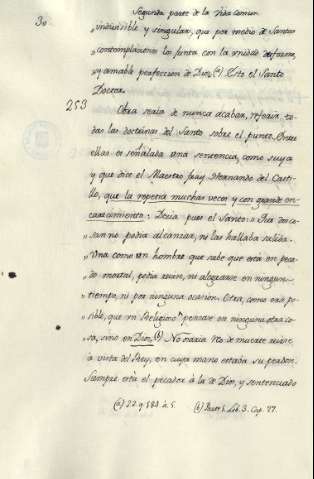 30 Segunda parte de la Vida comun
„indivisible y singular, que por medio de Santas
„contemplaciones la junta con la unidad deforme,
„y amable perfeccion de Dios. (a) Esto el Santo
Doctor.
253 Obra seria de nunca acabar, referir to
das las doctrinas del Santo sobre el punto. Entre
ellas es señalada una sentencia, como suya
y que dice el Maestro fray Hernando del Casti-
llo, que la repetia muchas veces y con grande en-
carecimiento: Decia pues el Santo: „Dos cosas
„no podia alcanzar, ni las hallaba salida.
„Una como un hombre que sabe que está en peca
„do mortal, podia reir, ni alegrarse en ningun
„tiempo, ni por ninguna ocasion. Otra, como era po
„sible, que un Religioso pensase en ninguna otra co
„sa, sino en Dios. (b) No haria Reo de muerte reirse
à vista del Rey, en cuya mano estaba su perdon.
Siempre está el pecador à la de Dios, y sentenciado
(a) 22. q. 180. à. 5. (b) Part. 1. Lib. 3. Cap. 77.